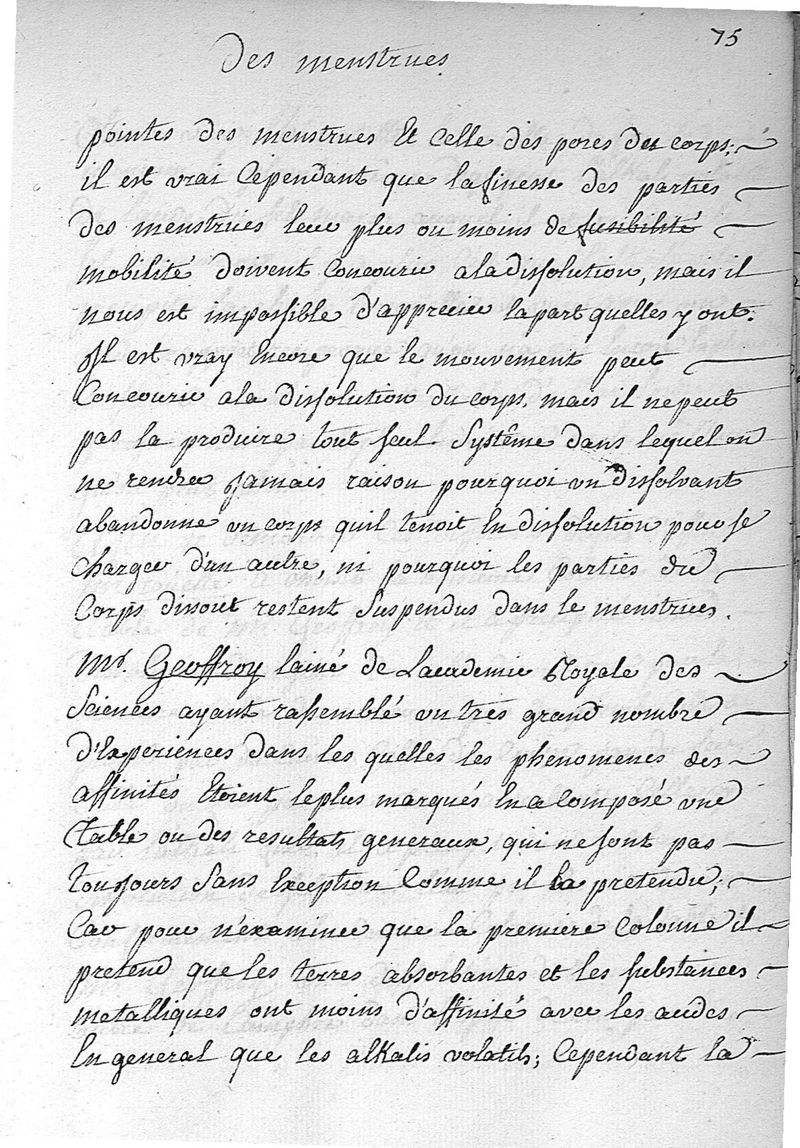 75
Des menstrues
pointes des menstrues Et Celle des pores du corps;
il est vrai Cependant que la finesse des parties
des menstrues leur plus ou moins de fusibilité
mobilité doivent Concourir a la dissolution, mais il
nous est impossible d'apprecier la part quelles y ont.
Il est vray Encore que le mouvement peut
Concourir a la dissolution du corps, mais il ne peut
pas la produire tout seul Systême dans lequel on
ne rendra Jamais raison pourquoi un dissolvant
abandonne un corps quil tenoit En dissolution pour se
charger d'un autre, ni pourquoi les parties du
Corps disout restent Suspendus dans le menstrues.
Mr. Geoffroy lainé de Lacademie Royale des
Sciences ayant rassemblé un tres grand nombre
d'Experiences dans les quelles les phenomenes des
affinités Etoient le plus marqués En a Composé une
Table ou des resultats generaux, qui ne sont pas
toujours Sans Exception Comme il la pretendu;
Car pour n'examiner que la premiere Colonne il
pretend que les terres absorbantes et les substances
metalliques ont moins d'affinité avec les acides
En general que les alkalis volatils; Cependant la